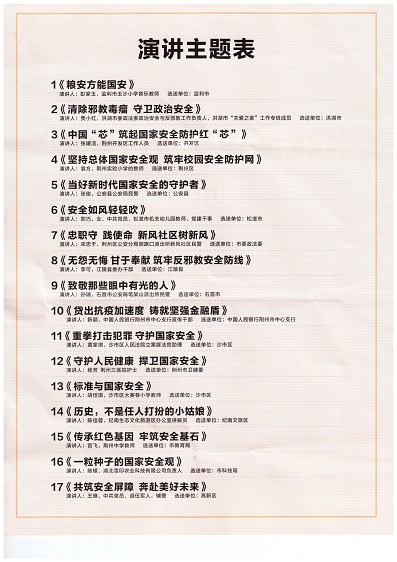 演讲主题表
1《粮安方能国安》
演讲人：彭家玉，监利市玉沙小学音乐教师 选送单位：监利市
2《清除邪教毒瘤 守卫政治安全》
演讲人：贾小红，洪湖市委政法委政治安全与反邪教工作负责人，洪湖市“关爱之家”工作专班成员 选送单位：洪湖市
3《中国“芯”筑起国家安全防护红“芯”》
演讲人：张媛洁，荆州开发区工作人员 选送单位：开发区
4《坚持总体国家安全观 筑牢校园安全防护网》
演讲人：袁方，荆州实验小学的教师 选送单位：荆州区
5《当好新时代国家安全的守护者》
演讲人：张俊，公安县公安局民警 选送单位：公安县
6《安全如风轻轻吹》
演讲人：郑巧，女，中共党员，松滋市机关幼儿园教师，党建干事 选送单位：松滋市
7《忠职守 践使命 新风社区树新风》
演讲人：宋忠于，荆州区公安分局御路口派出所新风社区民警 选送单位：市委政法委
8《无怨无悔 甘于奉献 筑牢反邪教安全防线》
演讲人：李可，江陵县委办干部 选送单位：江陵县
9《致敬那些眼中有光的人》
演讲人：孙瑞，石首市公安局笔架山派出所民警 选送单位：石首市
10《贷出抗疫加速度 铸就坚强金融盾》
演讲人：靳颖，中国人民银行荆州市中心支行宣传干部 选送单位：中国人民银行荆州市中心支行
11《重拳打击犯罪 守护国家安全》
演讲人：雷家琪，沙市区人民法院立案庭法官助理 选送单位：沙市区
12《守护人民健康 捍卫国家安全》
演讲人：杨芳 荆州三医院护士 选送单位：荆州市卫健委
13《标准与国家安全》
演讲人：胡佳琪，沙市区大赛巷小学教师 选送单位：沙市区
14《历史，不是任人打扮的小姑娘》
演讲人：陈佳蓉，纪南生态文化旅游区办公室讲解员 选送单位：纪南文旅区
15《传承红色基因 牢筑安全基石》
演讲人：官飞，荆州中学教师 选送单位：市教育局
16《一粒种子的国家安全观》
演讲人：陈模，湖北雪印农业科技有限公司负责人 选送单位：市科技局
17《共筑安全屏障 奔赴美好未来》
演讲人：王维，中共党员，退伍军人，辅警 选送单位：高新区